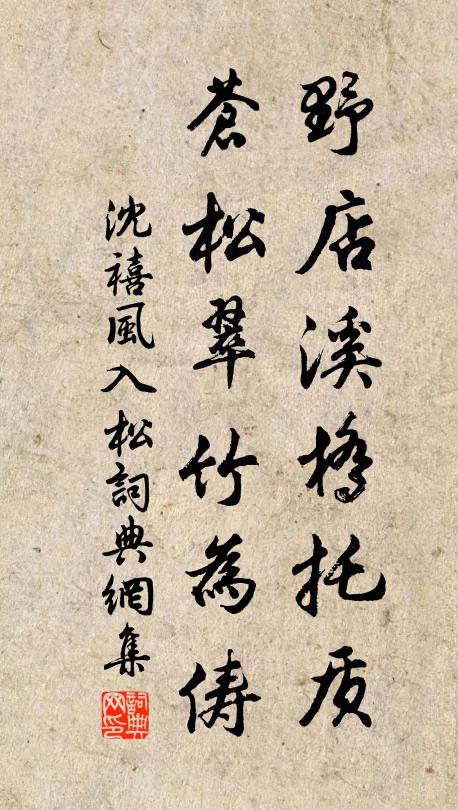 野店溪橋托质
蒼松翠竹為儔
沈禧風入松詞典網集
詞典网印